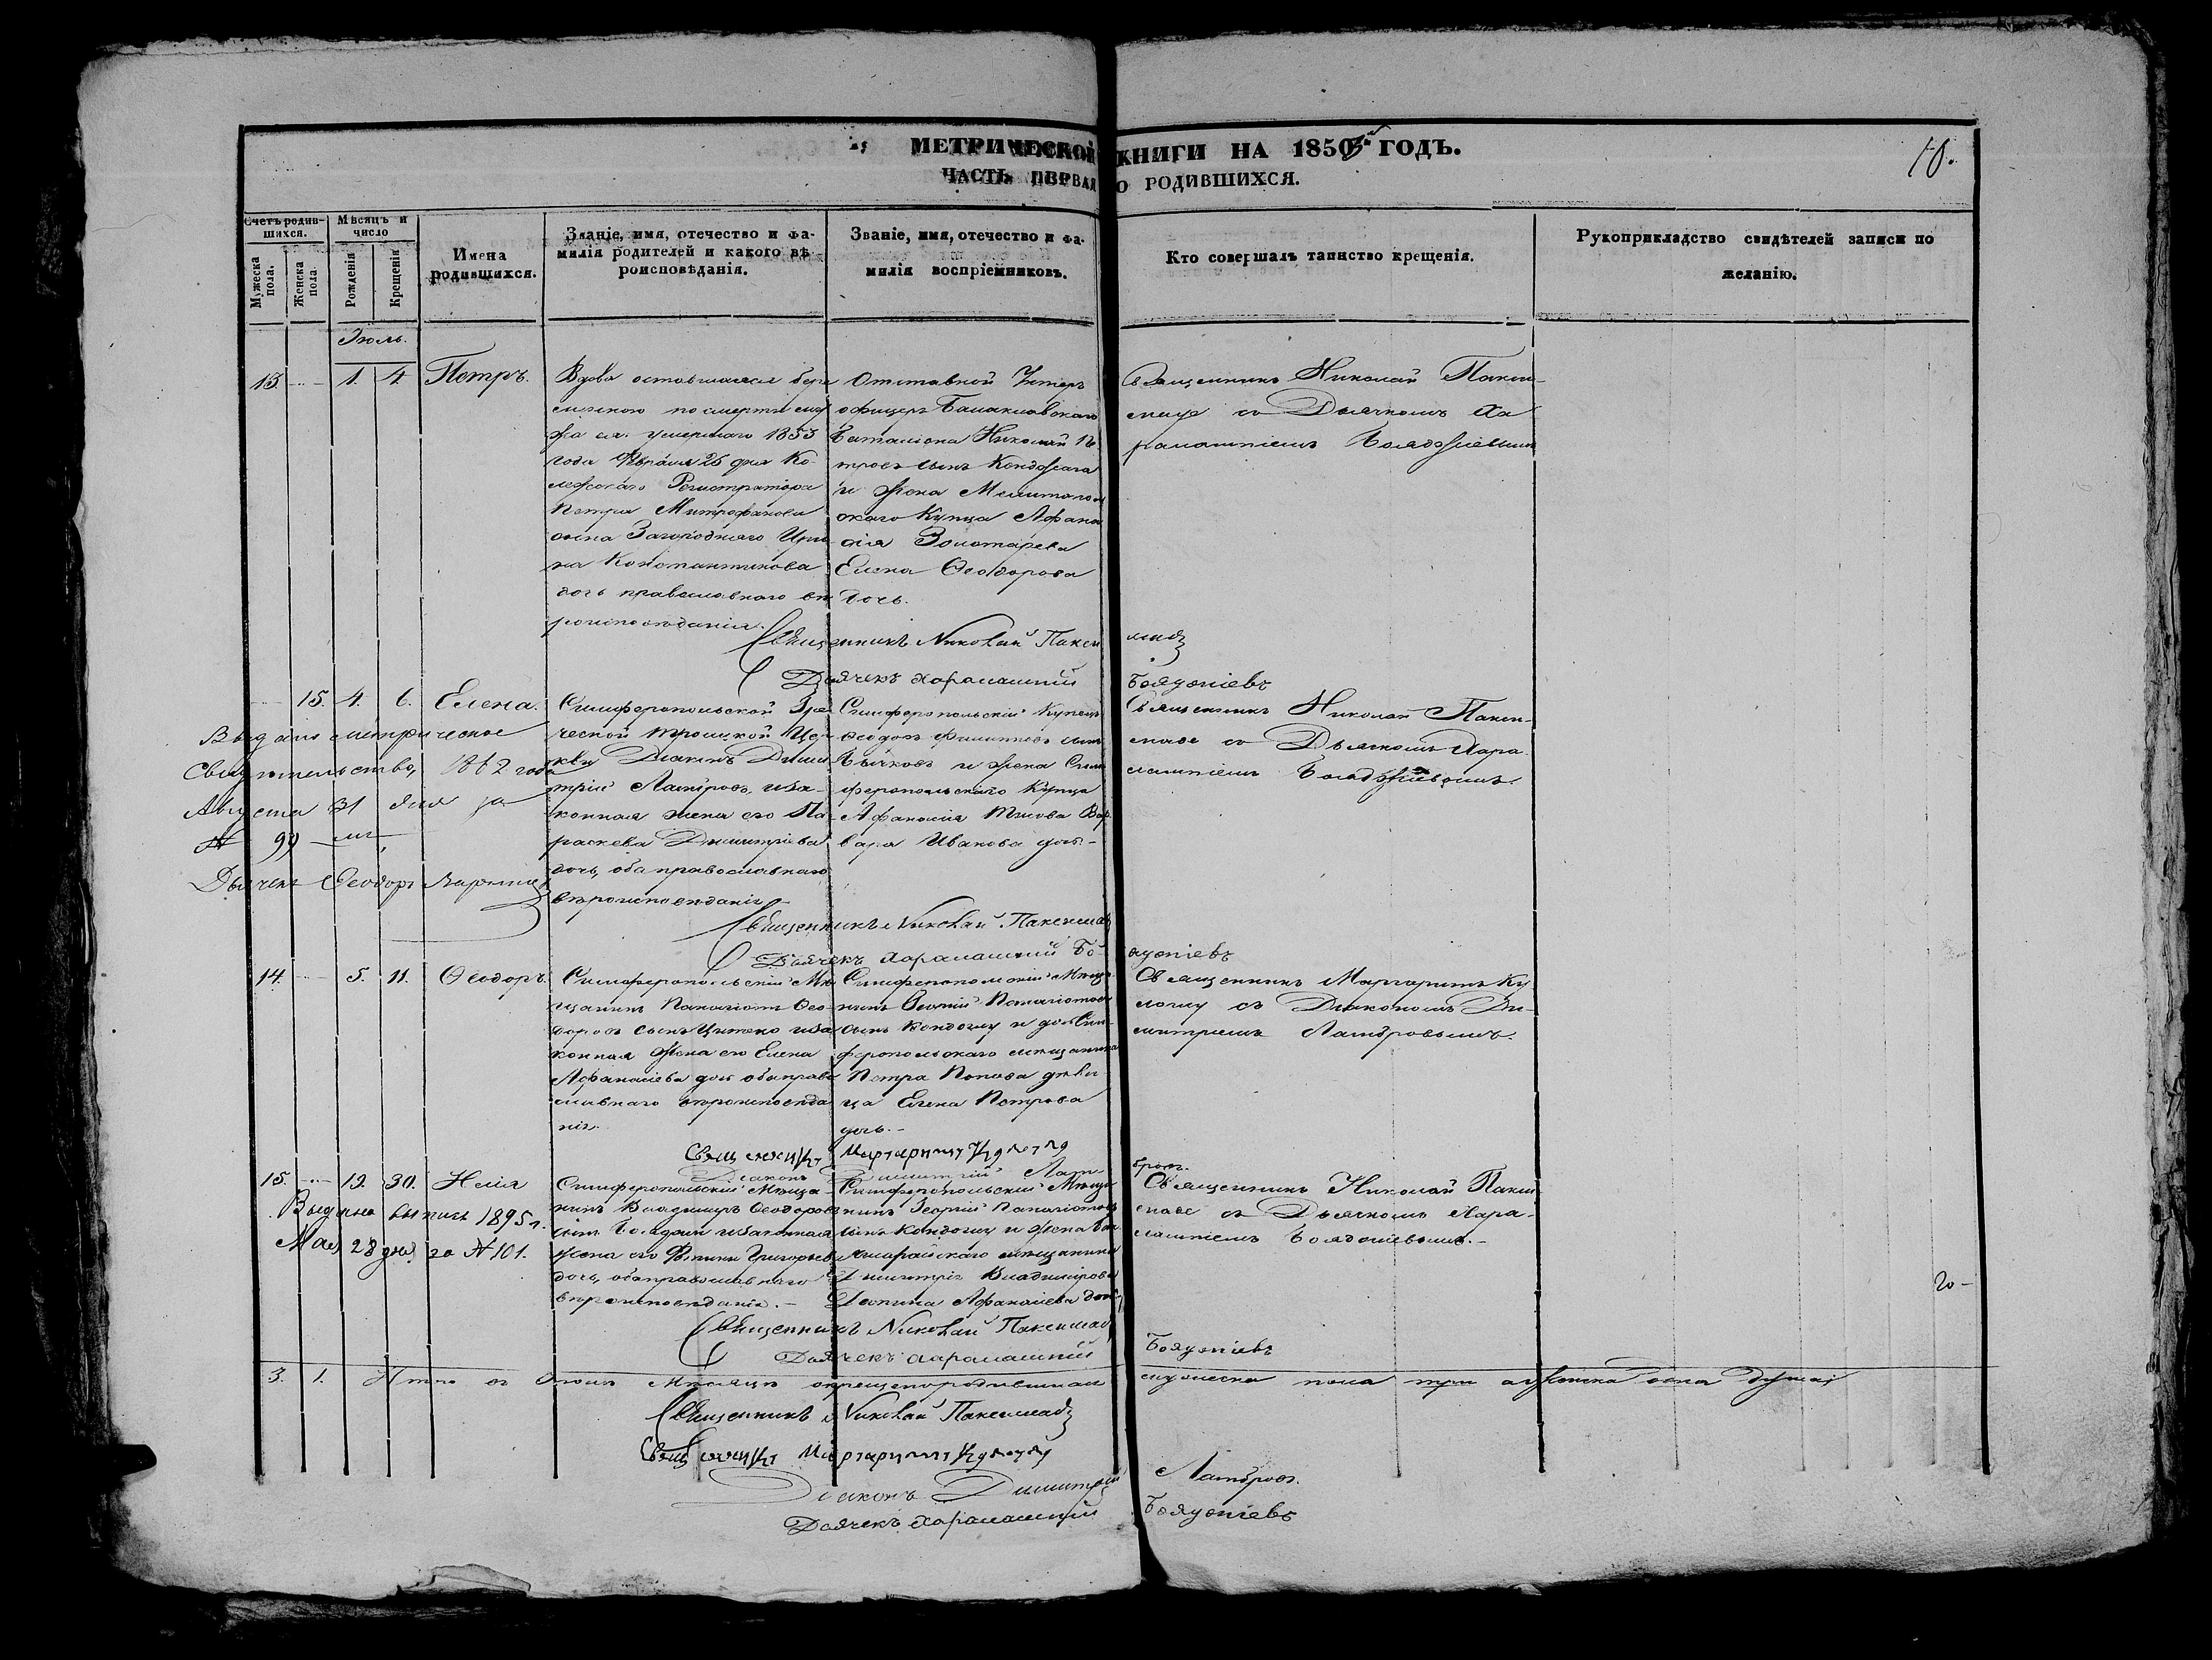 МЕТРИЧЕСКОЙ КНИГИ НА 1853й ГОДЪ.
ЧАСТЬ ПЕРВАЯ О РОДИВШИХСЯ.
10.
Счетъ родившихся.
Мужеска пола.
Женска пола.
Мѣсяцъ и число
Рожденія
Крещенія
Имена родившихся.
Званіе, имя, отечество и фа-
милія родителей и какого вѣ-
роисповѣданія.
Званіе, имя, отечество и фа-
милія воспріемниковъ.
Кто совершалъ таинство крещенія.
Рукоприкладство свидѣтелей записи по
желанію.
Іюль.
13. 1. 4. Петръ.
Вдова оставшаяся бере
по смерти му
жа ея умершаго 1853
года Февраля 26 дня Ко
лежскаго Регистратора
Петра Митрофанова
сына Загороднаго Ири
на Константинова
дочь православнаго вѣ
роисповѣданія.
Отставной Унтеръ
офицеръ Балаклавскаго
Баталіона Николай Пе
тровъ сынъ
и жена Мелитополь
скаго Купца Афана
сія Золотарева
Елена Ѳеодорова
дочь.
Священникъ Николай Пакси-
мадъ со Дьячкомъ Ха
ралампіемъ
Священникъ Николай Паксимадъ
Дьячекъ Харалампій
15. 4. 6. Елена.
Симферопольской Гре
ческой Троицкой Цер
кви Діаконъ Дими
трій Ламбровъ, и за-
конная жена его Па
раскева Димитріева
дочь, оба православнаго
вѣроисповѣданія
Симферопольскій Купецъ
Ѳеодоръ Филиповъ сынъ
Бычковъ и жена Сим
феропольскаго Купца
Афанасія Вар
вара Иванова дочь
Священникъ Николай Пакси-
мадъ со Дьячкомъ Хара
лампіемъ
Выдано метрическое
Свидѣтельство, 1862 года
Августа 31 дня за
№ 99
Дьячекъ Ѳеодоръ
Священникъ Николай Паксимадъ
Дьячекъ Харалампій
14. 5. 11. Ѳеодоръ.
Симферопольскій Мѣ
щанинъ Панагіотъ Ѳео
доровъ сынъ и за
конная жена его Елена
Афанасіева дочь оба право
славнаго вѣроисповѣда
нія.
Симферопольскій Мѣща
нинъ Георгій Панагіотовъ
сынъ Кондогиу и дочь Сим
феропольскаго мѣщанина
Петра Попова дѣви
ца Елена Петрова
дочь.
Священникъ Маргаритъ Ку
логлу съ Діакономъ Ди-
митріемъ Ламбровымъ.
Священникъ Маргаритъ Кулоглу
Діаконъ Димитрій Ламбровъ.
15. 19. 30. Илія
Симферопольскій Мѣща
нинъ Владимиръ Ѳеодоровъ
сынъ и законная
жена его Григорьева
дочь, оба православнаго
вѣроисповѣданія.
Симферопольскій Мѣща
нинъ Георгій Панагіотовъ
сынъ Кондогиу и жена Бах
чисарайскаго мѣщанина
Димитрія Владимірова
Деспина Афанасіева дочь
Священникъ Николай Пакси
мадъ съ Дьячкомъ Хара-
лампіемъ
Выдана выпись 1895 г.
Мая 28 дня за № 101.
20-
Священникъ Николай Паксимадъ
Дьячекъ Харалампій
3. 1. Итого въ Іюлѣ Мѣсяцѣ мужеска пола три а женска одна душа
Священникъ Николай Паксимадъ
Священникъ Маргаритъ Кулоглу
Діаконъ Димитрій Ламбровъ.
Дьячекъ Харалампій